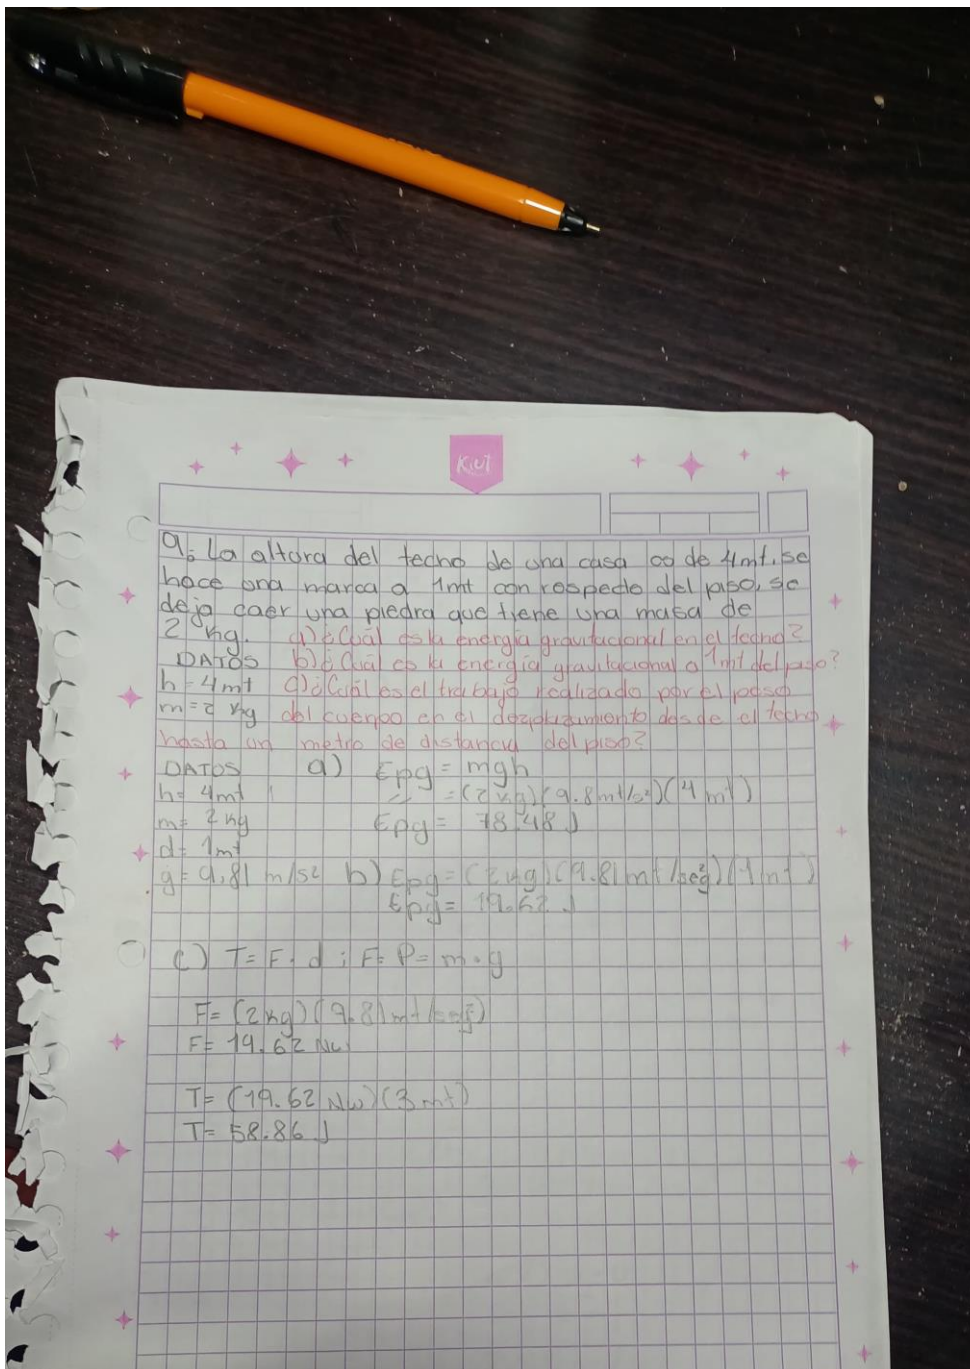 Kiut
9. La altura del techo de una casa es de 4mt. se
hace una marca a 1mt con respecto del piso, se
deja caer una piedra que tiene una masa de
2 kg. a) ¿Cuál es la energía gravitacional en el techo?
DATOS b) ¿Cuál es la energía gravitacional a 1mt del piso?
h = 4mt c) ¿Cuál es el trabajo realizado por el peso
m = 2 kg del cuerpo en el desplazamiento desde el techo
hasta un metro de distancia del piso?
DATOS a) Epg = mgh
h= 4mt = (2 kg) (9.8 mt/s²) (4 mt)
m= 2kg Epg = 78.48 J
d= 1mt
g= 9,81 m/s2 b) Epg = (2 kg) (9.81 mt/seg²) (1 mt)
Epg = 19.62 J
c) T= F. d ; F= P= m.g
F= (2 kg) (9.81 mt/seg²)
F= 19.62 Nw.
T= (19.62 Nw) (3 mt)
T= 58.86 J